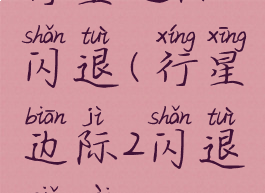 shǎn tuì xíng xīng
闪退(行星
biān jì shǎn tuì
边际2闪退